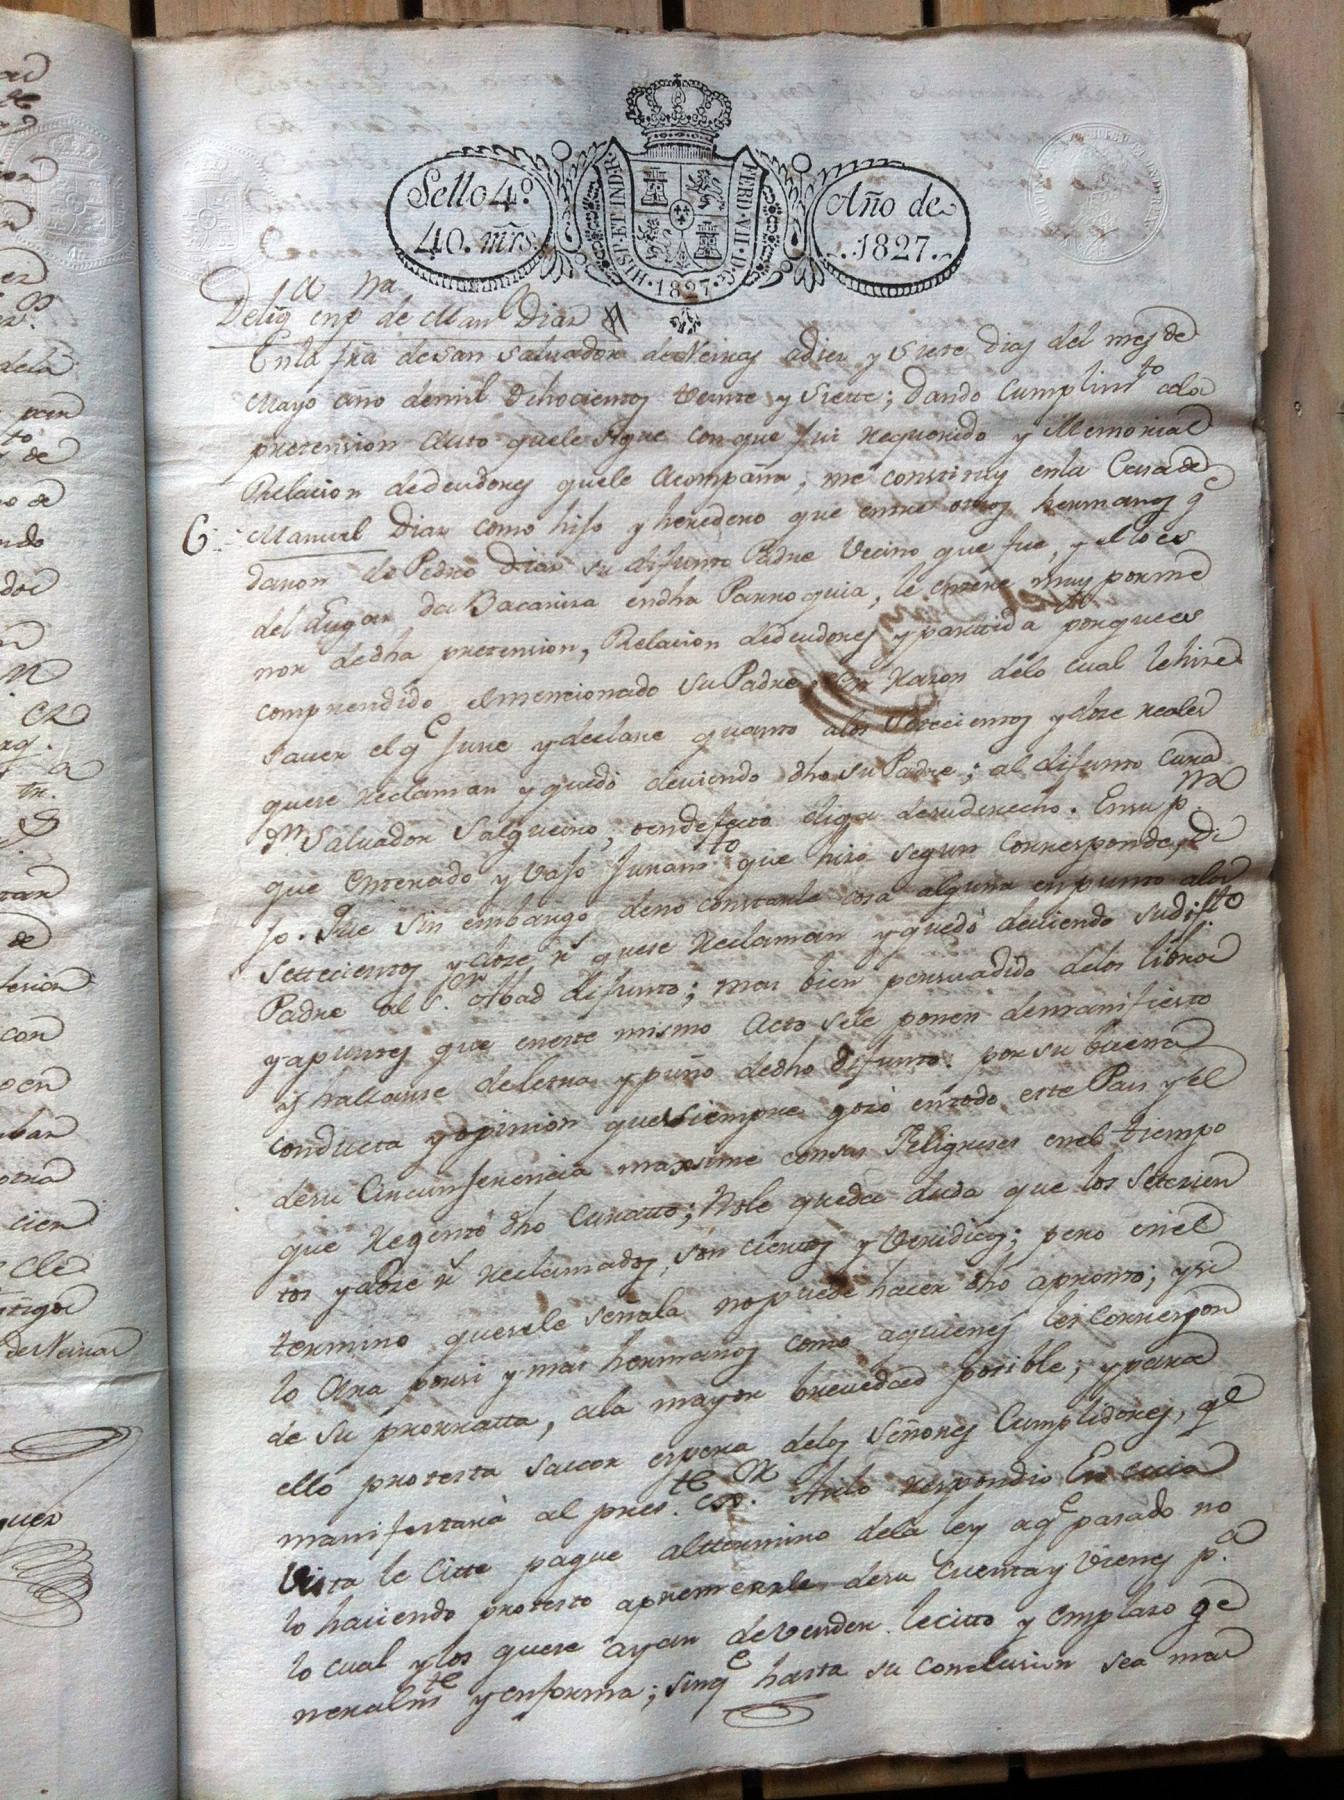 Sello 4º.
40. mrs.
HISP. ET IND. R.
FERD. VII. D. G.
1827
Año de
1827.
Delig.ª en pna de Man.l Diaz
En la fra de San Salvador de Neiras a diez y Siete dias del mes de
Mayo año de mil ochocientos veinte y Siette; dando Cumplim.to ala
pretension Auto quele sigue con que fui requerido y Memorial
Relacion dedeudores quele acompaña, me constitui enla Casa de
6 Manuel Diaz como hijo y heredero que entre otros hermanos q.e
daron de Pedro Diaz su difunto Padre Vecino que fue, y el lo es
del Lugar da Bacariza endha Parroquia, le entere muy porme
nor dedha pretension, Relacion dedeudores y partida porque es
comprendido elmencionado su Padre, en razon delo cual lehice
saver el q.e jure y declare quanto alos Setecientos ydoze reales
quese reclaman y quedó deviendo dho su Padre; al difunto Cura
D.n Salvador Salgueiro, o endefecto diga desuderecho. Ensu p.na
que Enterado y vajo Juram.to que hizo segun corresponde, Di
jo. Que sin embargo deno constarle cosa alguna enpunto alos
Settecientos ydoze r.s quese reclaman yquedó deviendo sudif.to
Padre al S.or Abad difunto; mas bien persuadido delos libros
yapuntes que eneste mismo Acto sele ponen demanifiesto
y hallarse deletra ypuño dedho difunto. por su buena
conducta yopinion quesiempre gozó entodo este Pais y el
desu Circunferencia maxime consus Feligreses enel tiempo
que regentó dho Curatto; Nole queda duda que los Setecien
tos ydoze r.s reclamados, son ciertos y veridicos; pero enel
termino quesele señala nopuede hacer dho apronto; ysi
lo ara porsi y mas hermanos como aquienes les correspon
de su prorratta, ala mayor brevedad posible, ypara
ello protesta sacar espera delos Señores Cumplidores, q.e
manifestará al pres.te Es.no. Asilo respondio En cuia
Vista le Citte pague alttermino dela ley aq.e pasado no
lo haciendo protesto apremiarle desu Cuenta y Vienes p.a
lo cual ylos quese ayan devender. lecitto y emplazo ge
neralm.te y enforma; sinq.e hasta su conclusion sea mas